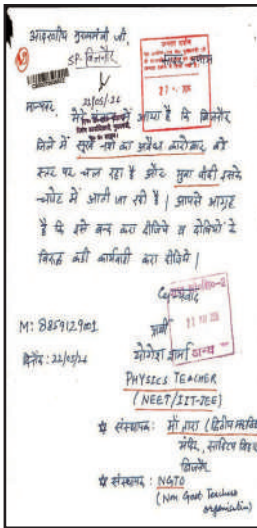 आदरणीय मुख्यमंत्री जी,
SP. बिजनौर
सादर प्रणाम
मान्यवर, मेरे में आया है कि बिजनौर
जिले में सूखे नशे का अवैध कारोबार बड़े
स्तर पर चल रहा है और युवा पीढ़ी इसके
चपेट में आती जा रही है। आपसे आग्रह
है कि इसे बन्द करा दीजिये व दोषियों के
विरुद्ध कड़ी कार्यवाही करा दीजिये।
धन्यवाद
प्रार्थी
M: 8859129001
योगेश शर्मा
PHYSICS TEACHER
(NEET/IIT-JEE)
संस्थापक: माँ तारा (द्वितीय
मंदिर, साहित्य विहार
बिजनौर
संस्थापक: NGTO
(Non Govt Teachers
organisation)